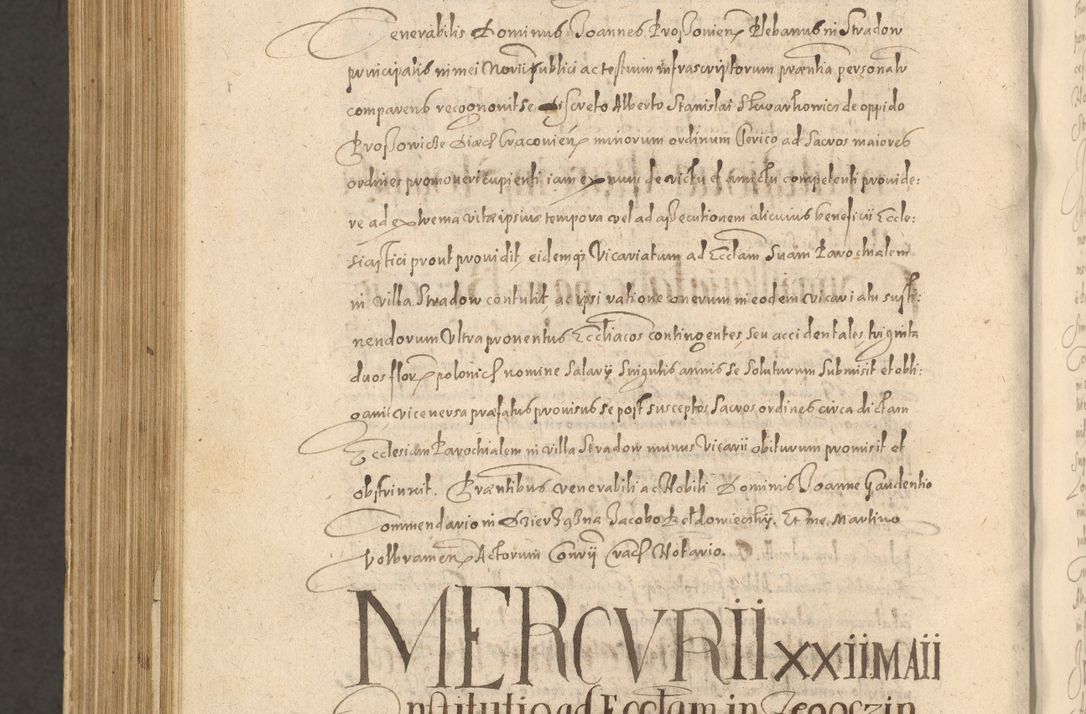 Venerabilis Dominus Joannes Proſſovieñ Plebanus in Stradow
principalis in mei Notarii publici ac testium infrascriptorum præntia personalr
comparens recognovit se discreto Alberto Stanislai de oppido
Proſſowicze Diæc Cracovien minorum ordinum Clerico ad Sacros maiores
ordines promoveri cupienti iam ex nunc de victu et amictu competenti provide:
re ad extrema vitæ ipsius tempora vel ad aſſecutionem alicuius beneficii Eccle:
siastici prout providit, eidemqz Vicariatum ad Ecclam Suam Parochialem
in villa Stradow contulit, ac ipsi ratione onerum in eodem vicariatu susti:
nendorum Ultra proventus Eccliacos contingentes, seu accidentales triginta
duos flor polonicł nomine Salarÿ Singulis annis se Soluturum Submisit et obli:
gavit, vice versa præfatus provisus se post susceptos Sacros ordines circa dictam
Ecclesiam Parochialem in villa Stradow munus Vicarii obiturum promisit et
obstrinxit. Præntibus venerabili ac Nobili Dominis Joanne Gaudentio
Commendario in Jacobo Et me Martino
Volbramen Actorum Conrÿ Cracł Notario.
MERCVRII XXII MAII
Institutio ad Ecclam in